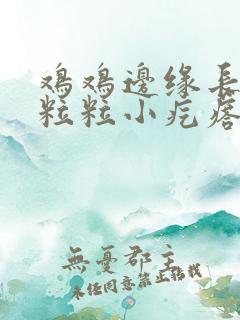 鸡鸡邊缘長
粒粒小疙瘩
無憂郡主
未经同意禁止搭我